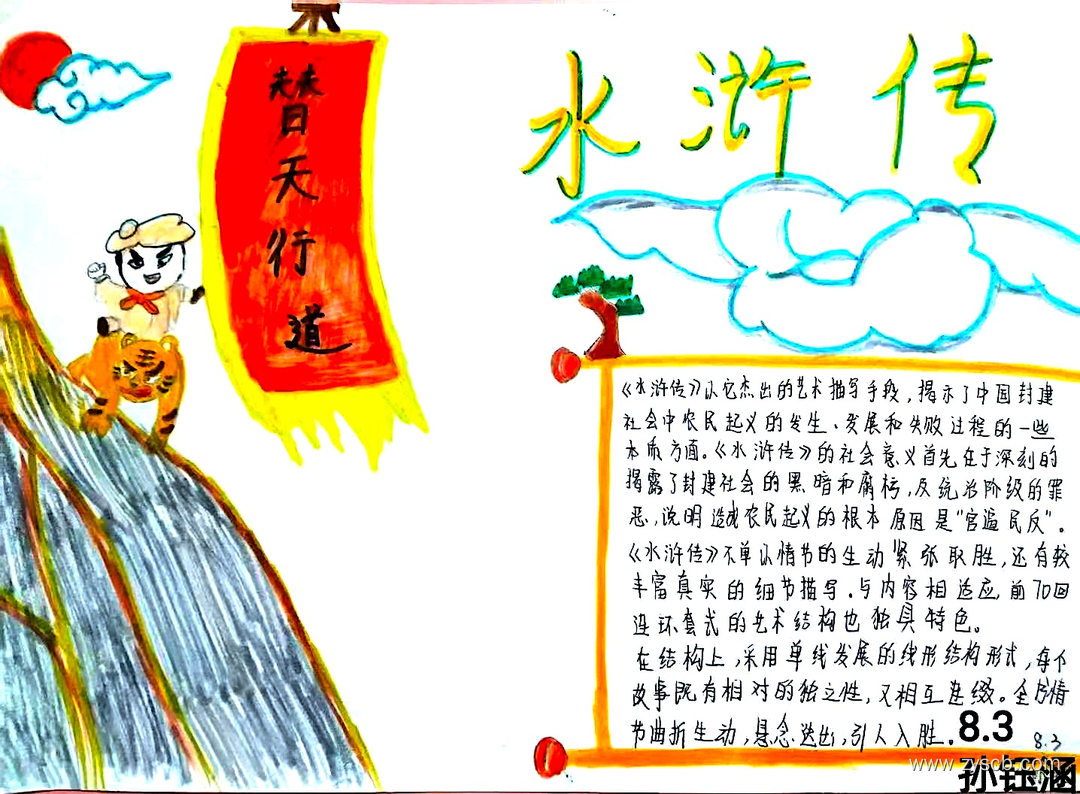 替天行道
水浒传
《水浒传》以它杰出的艺术描写手段，揭示了中国封建
社会中农民起义的发生、发展和失败过程的一些
本质方面。《水浒传》的社会意义首先在于深刻的
揭露了封建社会的黑暗和腐朽，及统治阶级的罪
恶，说明造成农民起义的根本原因是"官逼民反"。
《水浒传》不单以情节的生动紧张取胜，还有较
丰富真实的细节描写。与内容相适应，前70回
连环套式的艺术结构也独具特色。
在结构上，采用单线发展的线形结构形式，每个
故事既有相对的独立性，又相互连缀。全书情
节曲折生动，悬念迭出，引人入胜。
8.3
8.3
www.zyscb.com
孙钰涵